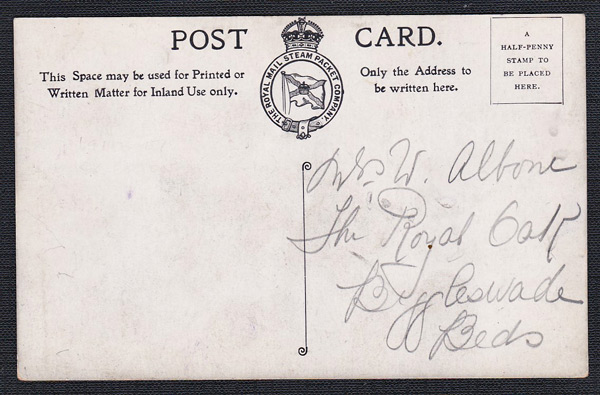 POST CARD.
This Space may be used for Printed or
Written Matter for Inland Use only.
THE ROYAL MAIL STEAM PACKET COMPANY
Only the Address to
be written here.
A
HALF-PENNY
STAMP TO
BE PLACED
HERE.
Mrs W. Albone
The Royal Oak
Biggleswade
Beds